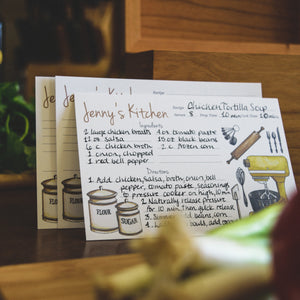 Jenny's Kitchen
Recipe: Chicken Tortilla Soup
Serves: 8 Prep Time: 10 min Cook Time: 10 min
Ingredients
2 large chicken breasts 4 oz tomato paste
12 oz salsa 15 oz black beans
6 c chicken broth 2 c frozen corn
1 onion, chopped
1 red bell pepper
Directions
1. Add chicken, salsa, broth, onion, bell
pepper, tomato paste, seasonings
to pressure cooker on high, 10 min
2. Naturally release pressure
for 10 min then quick release
3.
4.
FLOUR
SUGAR
FLOUR
FLOUR
J
Je
Recipe